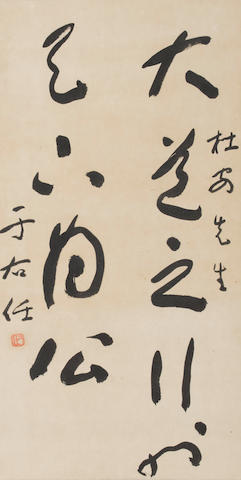 杜安先生
大道之行也
天下為公
于右任